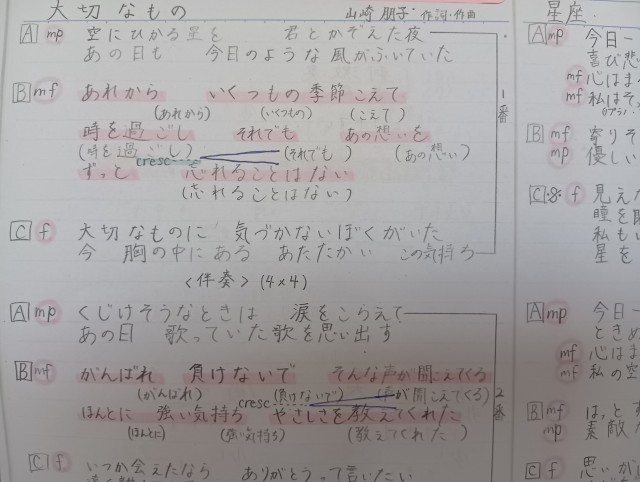 大切なもの 山崎朋子・作詞・作曲
A mp 空にひかる星を 君とかぞえた夜
あの日も 今日のような風がふいていた
B mf あれから いくつもの季節こえて
(あれから) (いくつもの) (こえて)
時を過ごし それでも あの想いを
(時を過ごし) (それでも) (あの想い)
cresc
ずっと 忘れることはない
(忘れることはない)
1番
C f 大切なものに 気づかないぼくがいた
今 胸の中にある あたたかい この気持ち
<伴奏> (4×4)
A mp くじけそうなときは 涙をこらえて
あの日 歌っていた歌を思い出す
B mf がんばれ 負けないで そんな声が聞こえてくる
(がんばれ) (負けないで) (声が聞こえてくる)
cresc
ほんとに 強い気持ち やさしさを教えてくれた
(ほんとに) (強い気持ち) (教えてくれた)
2番
C f いつか会えたなら ありがとうって言いたい
星座
A mp 今日一
喜び悲
mf 心はま
mf 私はそ
B mf 寄りそ
mp 優しい
C f 見えた
瞳を
私も
星を
A mp 今日一
ときめ
mf 心はま
mf 私の空
B mf はっと
mp 素敵
C f 思い